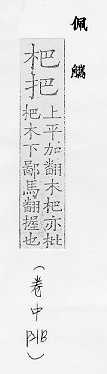 佩觿
杷把
上平加翻木杷亦枇
杷木下鄙馬翻握也
(卷中)